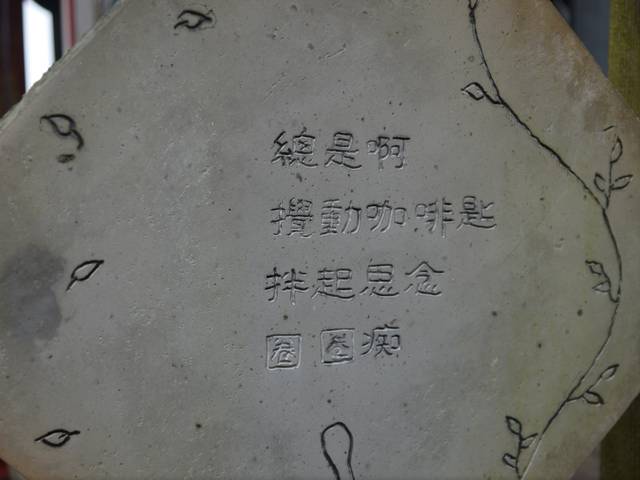 總是啊
攪動咖啡匙
拌起思念
圈圈痴